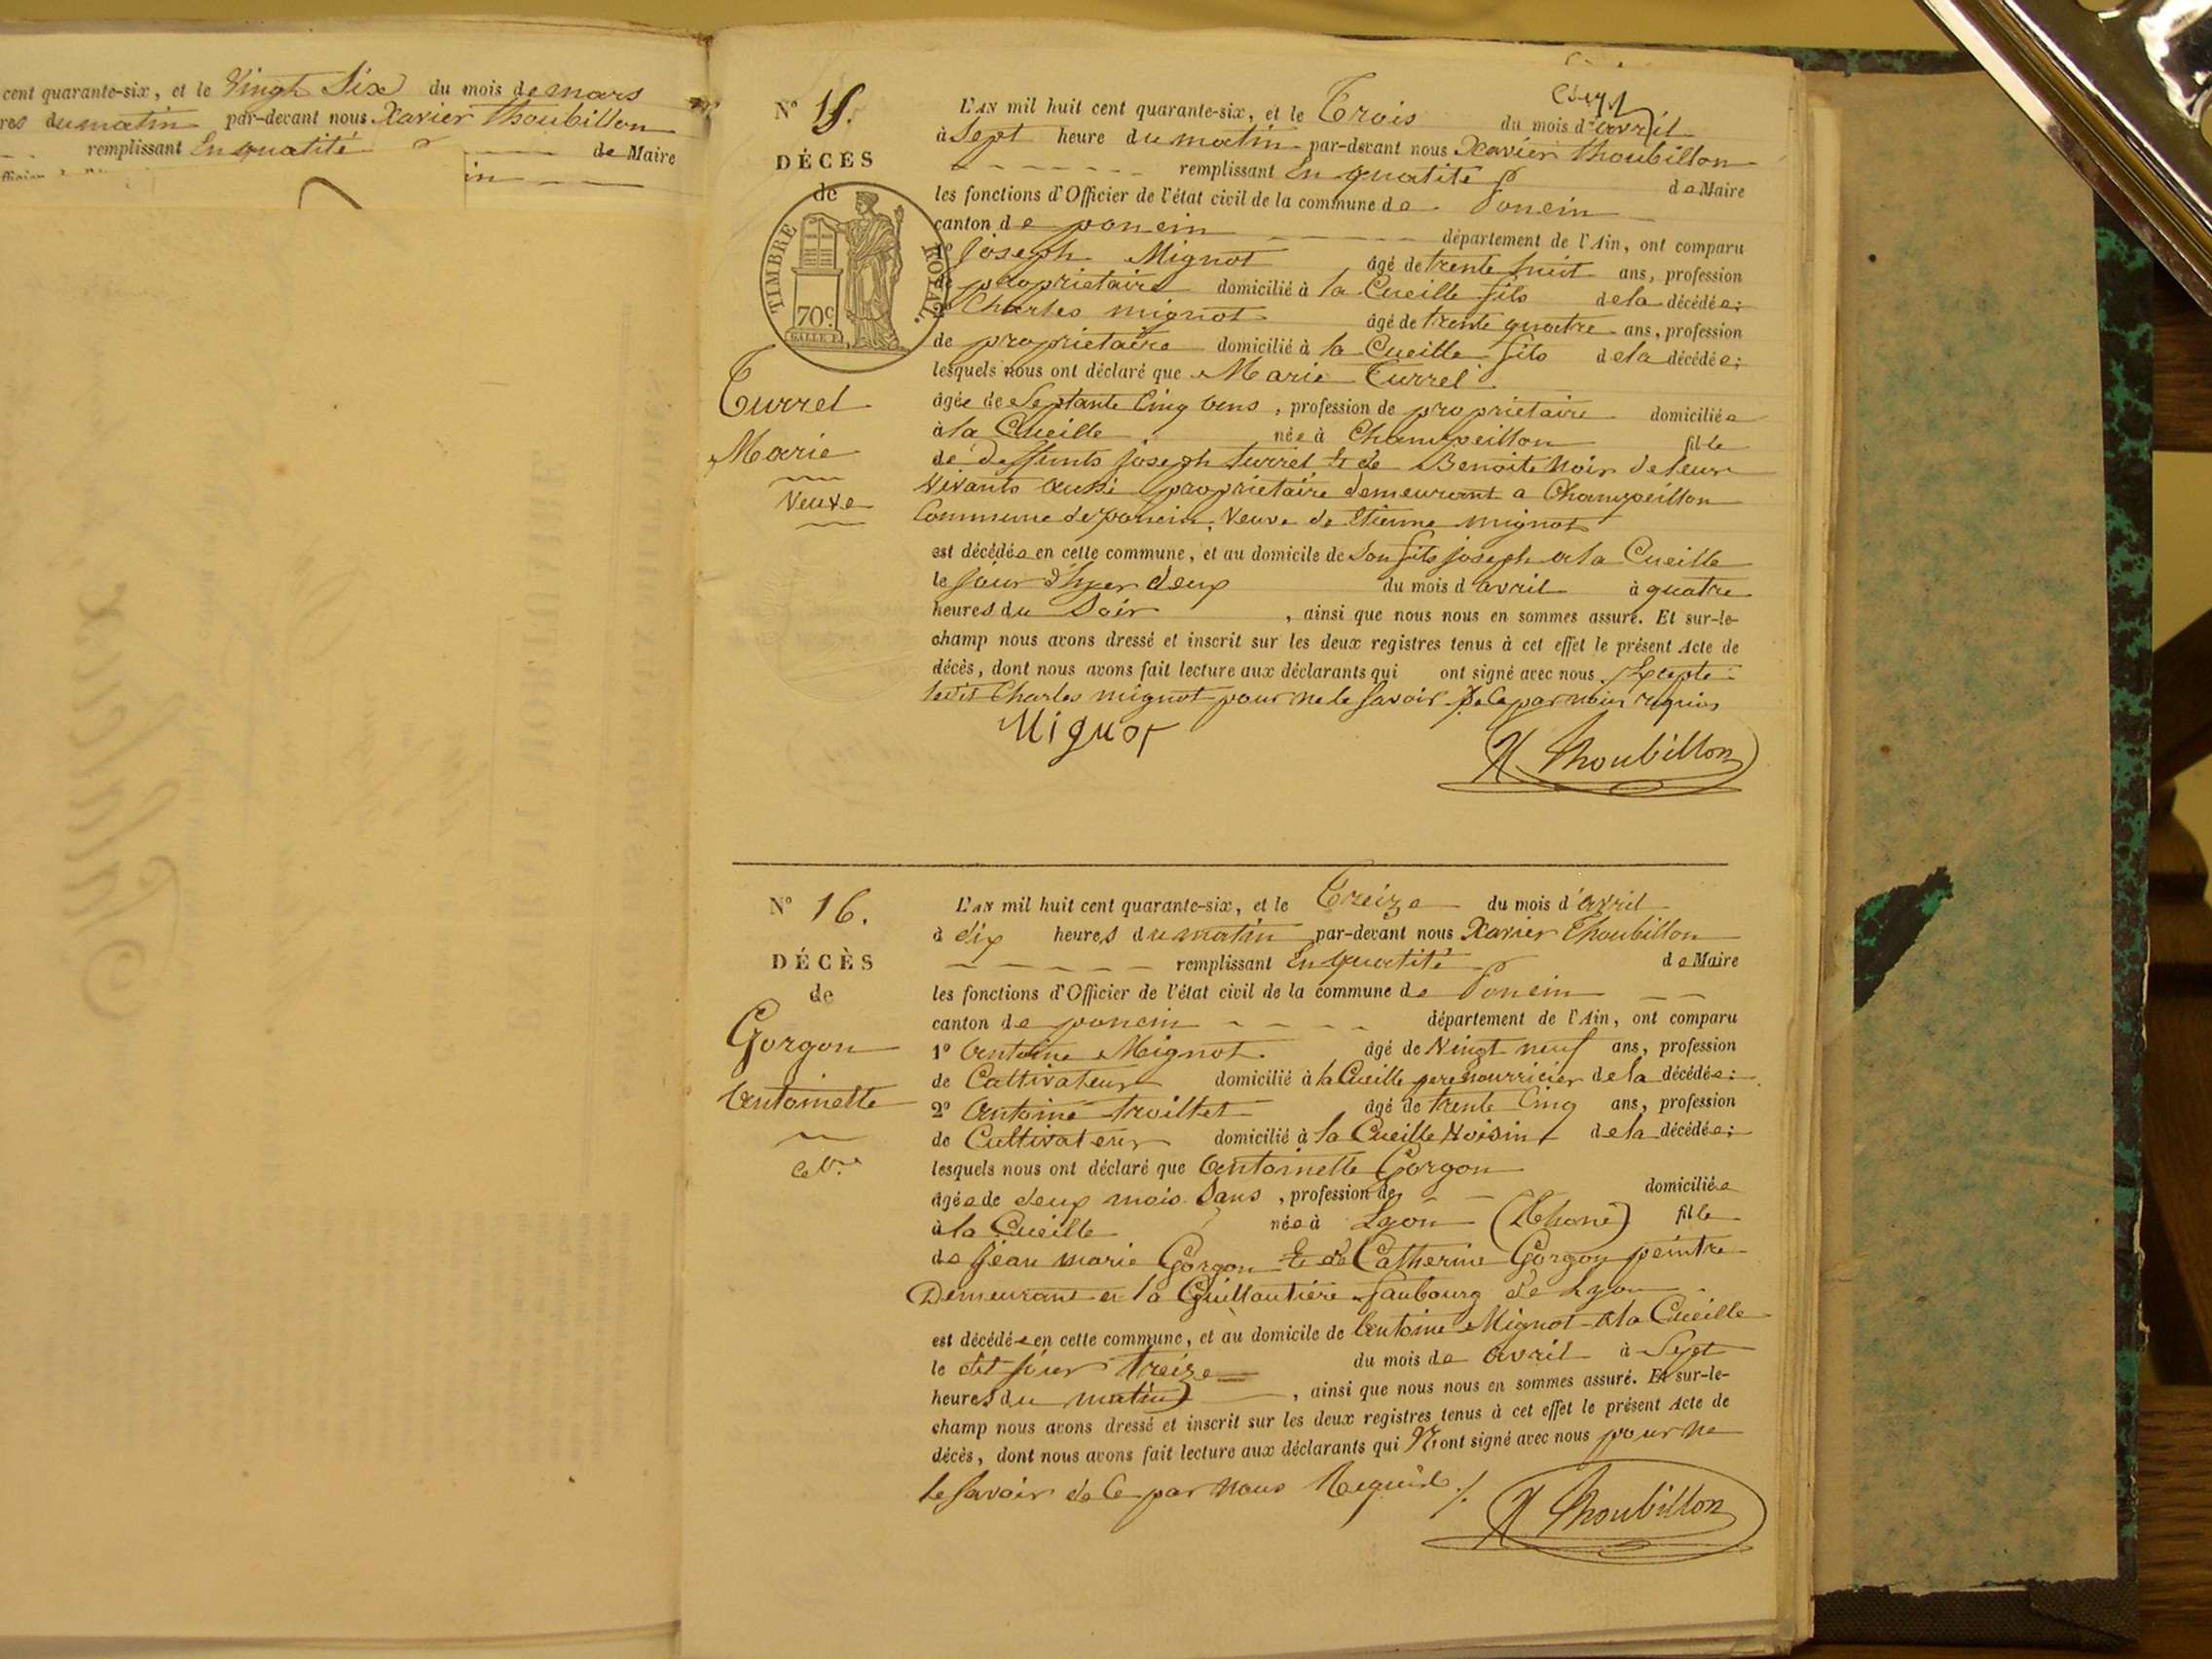 cent quarante-six, et le Vingt Six du mois de mars
res du matin par-devant nous Xavier Thoubillon
remplissant En qualité de Maire
in
N° 15.
DÉCÈS
de
TIMBRE ROYAL.
70c
Turrel
Marie
Veuve
L'AN mil huit cent quarante-six, et le Trois du mois d'avril
à Sept heure du matin par-devant nous Xavier Thoubillon
remplissant En qualité de Maire
les fonctions d'Officier de l'état civil de la commune de Poncin
canton de poncin département de l'Ain, ont comparu
1° Joseph Mignot âgé de trente huit ans, profession
de propriétaire domicilié à la Cueille fils de la décédée;
2° Charles mignot âgé de trente quatre ans, profession
de propriétaire domicilié à la Cueille fils de la décédée;
lesquels nous ont déclaré que Marie Turrel
âgée de Septante Cinq ans, profession de propriétaire domiciliée
à la Cueille née à Champeillon fille
de deffunts Joseph turrel et de Benoite Noir de leur
vivants aussi propriétaire demeurant a Champeillon
Commune de poncin, Veuve de Etienne mignot
est décédée en cette commune, et au domicile de Son fils joseph a la Cueille
le jour d'hyer deux du mois d'avril à quatre
heures du Soir, ainsi que nous nous en sommes assuré. Et sur-le-
champ nous avons dressé et inscrit sur les deux registres tenus à cet effet le présent Acte de
décès, dont nous avons fait lecture aux déclarants qui ont signé avec nous Excepté
ledit Charles mignot pour ne le Savoir de Ce par nous requis
Mignot
X Thoubillon
N° 16.
DÉCÈS
de
Gorgon
Antoinette
L'AN mil huit cent quarante-six, et le Treize du mois d'avril
à dix heures du matin par-devant nous Xavier Thoubillon
remplissant En qualité de Maire
les fonctions d'Officier de l'état civil de la commune de Poncin
canton de poncin département de l'Ain, ont comparu
1° Antoine Mignot âgé de Vingt neuf ans, profession
de Cultivateur domicilié à la Cueille pere nourricier de la décédée;
2° Antoine troillet âgé de trente Cinq ans, profession
de Cultivateur domicilié à la Cueille Voisin de la décédée;
lesquels nous ont déclaré que Antoinette Gorgon
âgée de deux mois Sans, profession de domiciliée
à la Cueille née à Lyon (Rhone) fille
de Jean marie Gorgon et de Catherine Gorgon peintre
Demeurant a la Guillautière faubourg de Lyon
est décédée en cette commune, et au domicile de Antoine Mignot a la Cueille
le dit jour treize du mois de avril à Sept
heures du matin, ainsi que nous nous en sommes assuré. Et sur-le-
champ nous avons dressé et inscrit sur les deux registres tenus à cet effet le présent Acte de
décès, dont nous avons fait lecture aux déclarants qui N'ont signé avec nous pour ne
le Savoir de Ce par nous Requis ./.
X Thoubillon